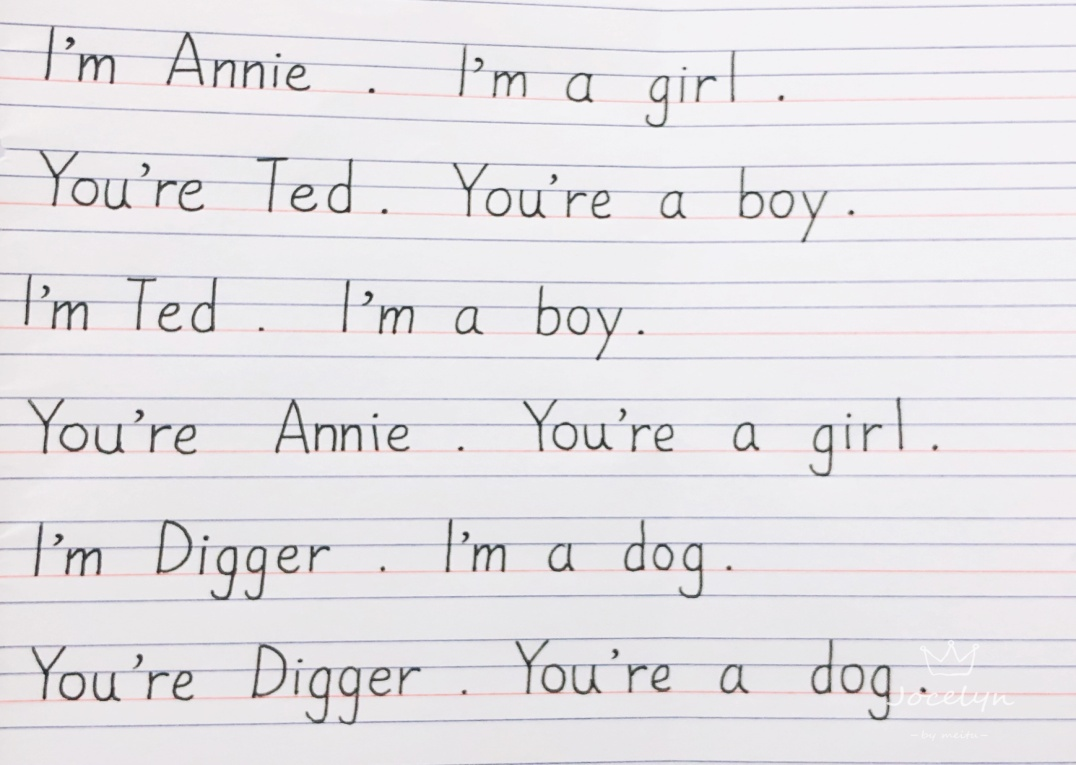 I'm Annie . I'm a girl .
You're Ted . You're a boy .
I'm Ted . I'm a boy .
You're Annie . You're a girl .
I'm Digger . I'm a dog .
You're Digger . You're a dog .
Jocelyn
-by meitu-